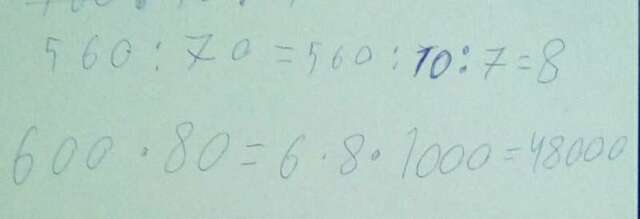 560 : 70 = 560 : 10 : 7 = 8
600 · 80 = 6 · 8 · 1000 = 48000